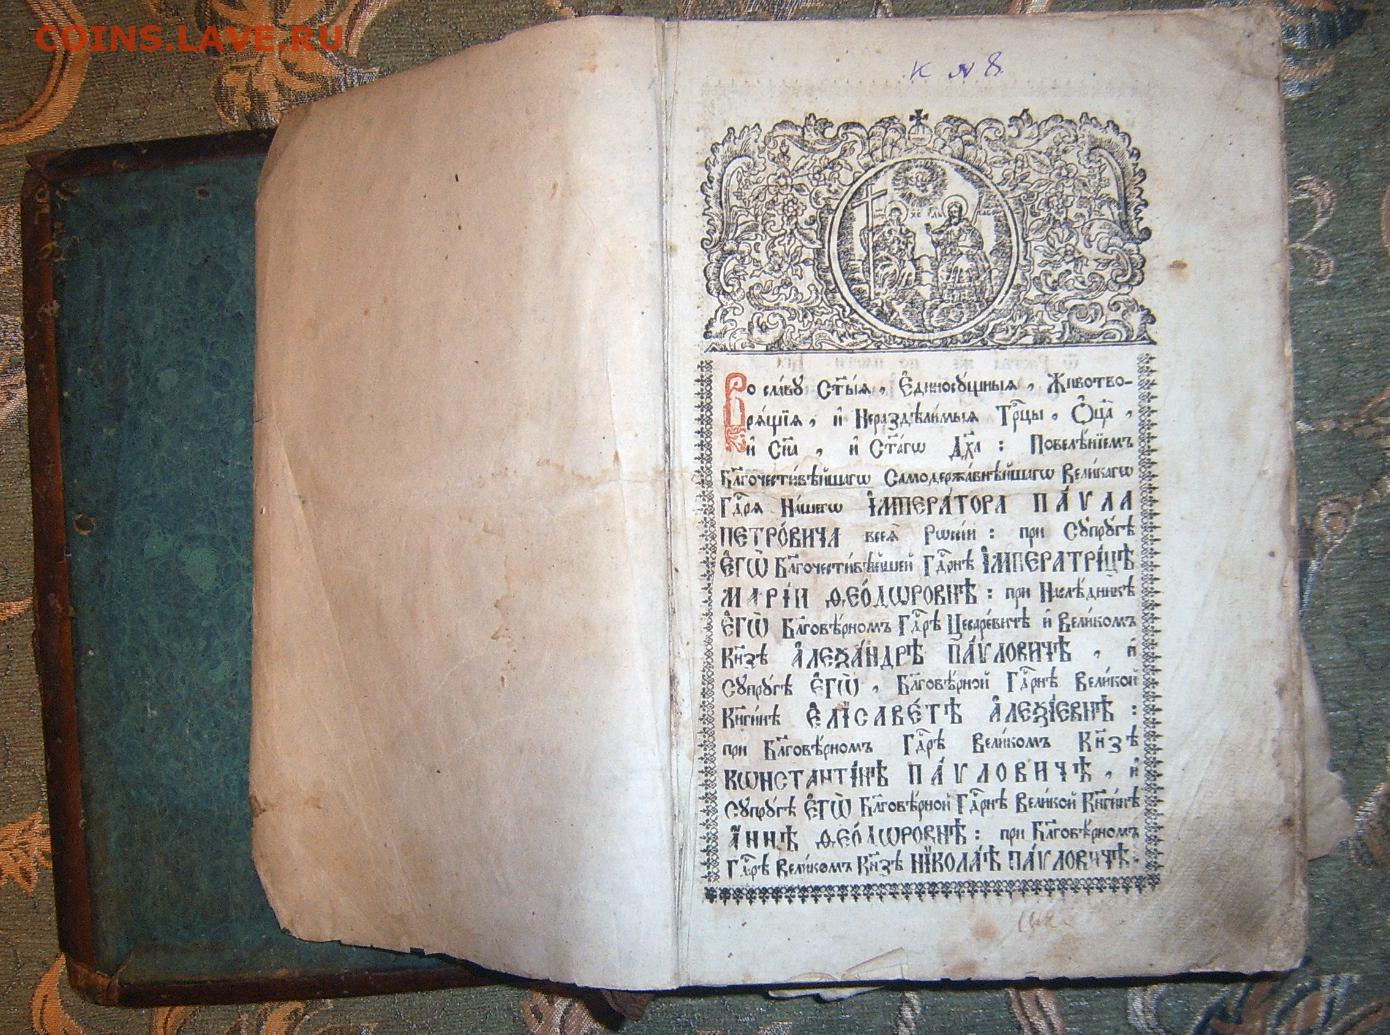 COINS.LAVE.RU
К № 8
Во славу Ст҃ы́я, Є҆диносу́щныя, Животво-
рѧ́щїѧ, и҆ Нераздѣли́мыѧ Тр҃цы, Ѻ҆ц҃а̀,
и҆ Сн҃а, и҆ Ст҃а́гѡ Дх҃а: Повелѣ́нїемъ
Бл҃гочести́вѣйшагѡ Самодержа́внѣйшагѡ Вели́кагѡ
Гд҃рѧ На́шегѡ І҆МПЕРА́ТОРА ПА́ѴЛА
ПЕТРО́ВИЧА всеѧ̀ Рѡссі́и: при Супру́гѣ
Є҆ГѠ̀ Бл҃гочести́вѣйшей Гд҃рнѣ І҆МПЕРАТРИ́ЦѢ
МАРІ́И Ѳ҆ЕО́ДѠРОВНѢ: при Наслѣ́дникѣ
Є҆ГѠ̀ Бл҃говѣ́рномъ Гд҃рѣ Цесаре́вичѣ и҆ Вели́комъ
Кн҃зѣ А҆ЛЕѮА́НДРѢ ПА́ѴЛОВИЧѢ, и҆
Супру́гѣ Є҆гѡ̀, Бл҃говѣ́рной Гд҃рнѣ Вели́кой
Кн҃ги́нѣ Є҆ЛІСАВЕ́ТѢ А҆ЛЕѮІ́ЕВНѢ:
при Бл҃говѣ́рномъ Гд҃рѣ Вели́комъ Кн҃зѣ
КѠНСТАНТІ́НѢ ПА́ѴЛОВИЧѢ, и҆
Супру́гѣ Є҆ГѠ̀ Бл҃говѣ́рной Гд҃рнѣ Вели́кой Кн҃ги́нѣ
А҆́ННѢ Ѳ҆ЕО́ДѠРОВНѢ: при Бл҃говѣ́рномъ
Гд҃рѣ Вели́комъ Кн҃зѣ НІКОЛА́Ѣ ПА́ѴЛОВИЧѢ.